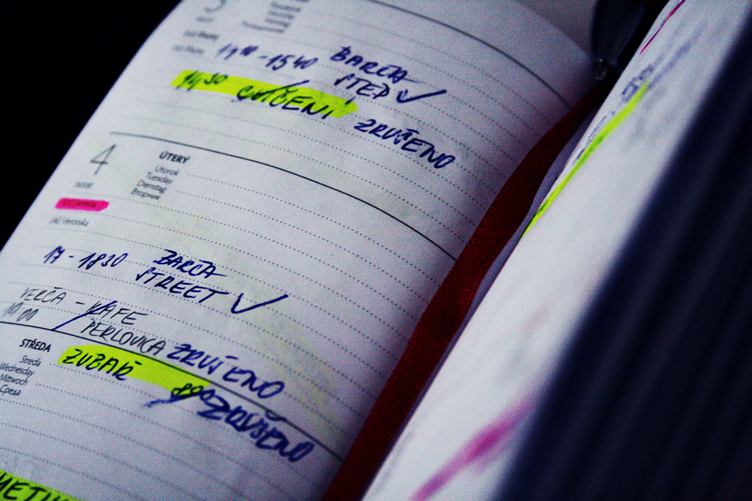 BARČA
STEP ✓
14³⁰ CVIČENÍ ZRUŠENO
4
ÚTERÝ
Utorok
Tuesday
Dienstag
Вторник
(sk) Veronika
17 - 18³⁰ BARČA
STREET ✓
VERČA - KAFE
PERLOVKA ZRUŠENO
STŘEDA
Streda
Wednesday
Mittwoch
Среда
ZUBAŘ 8⁰⁰ ZRUŠENO